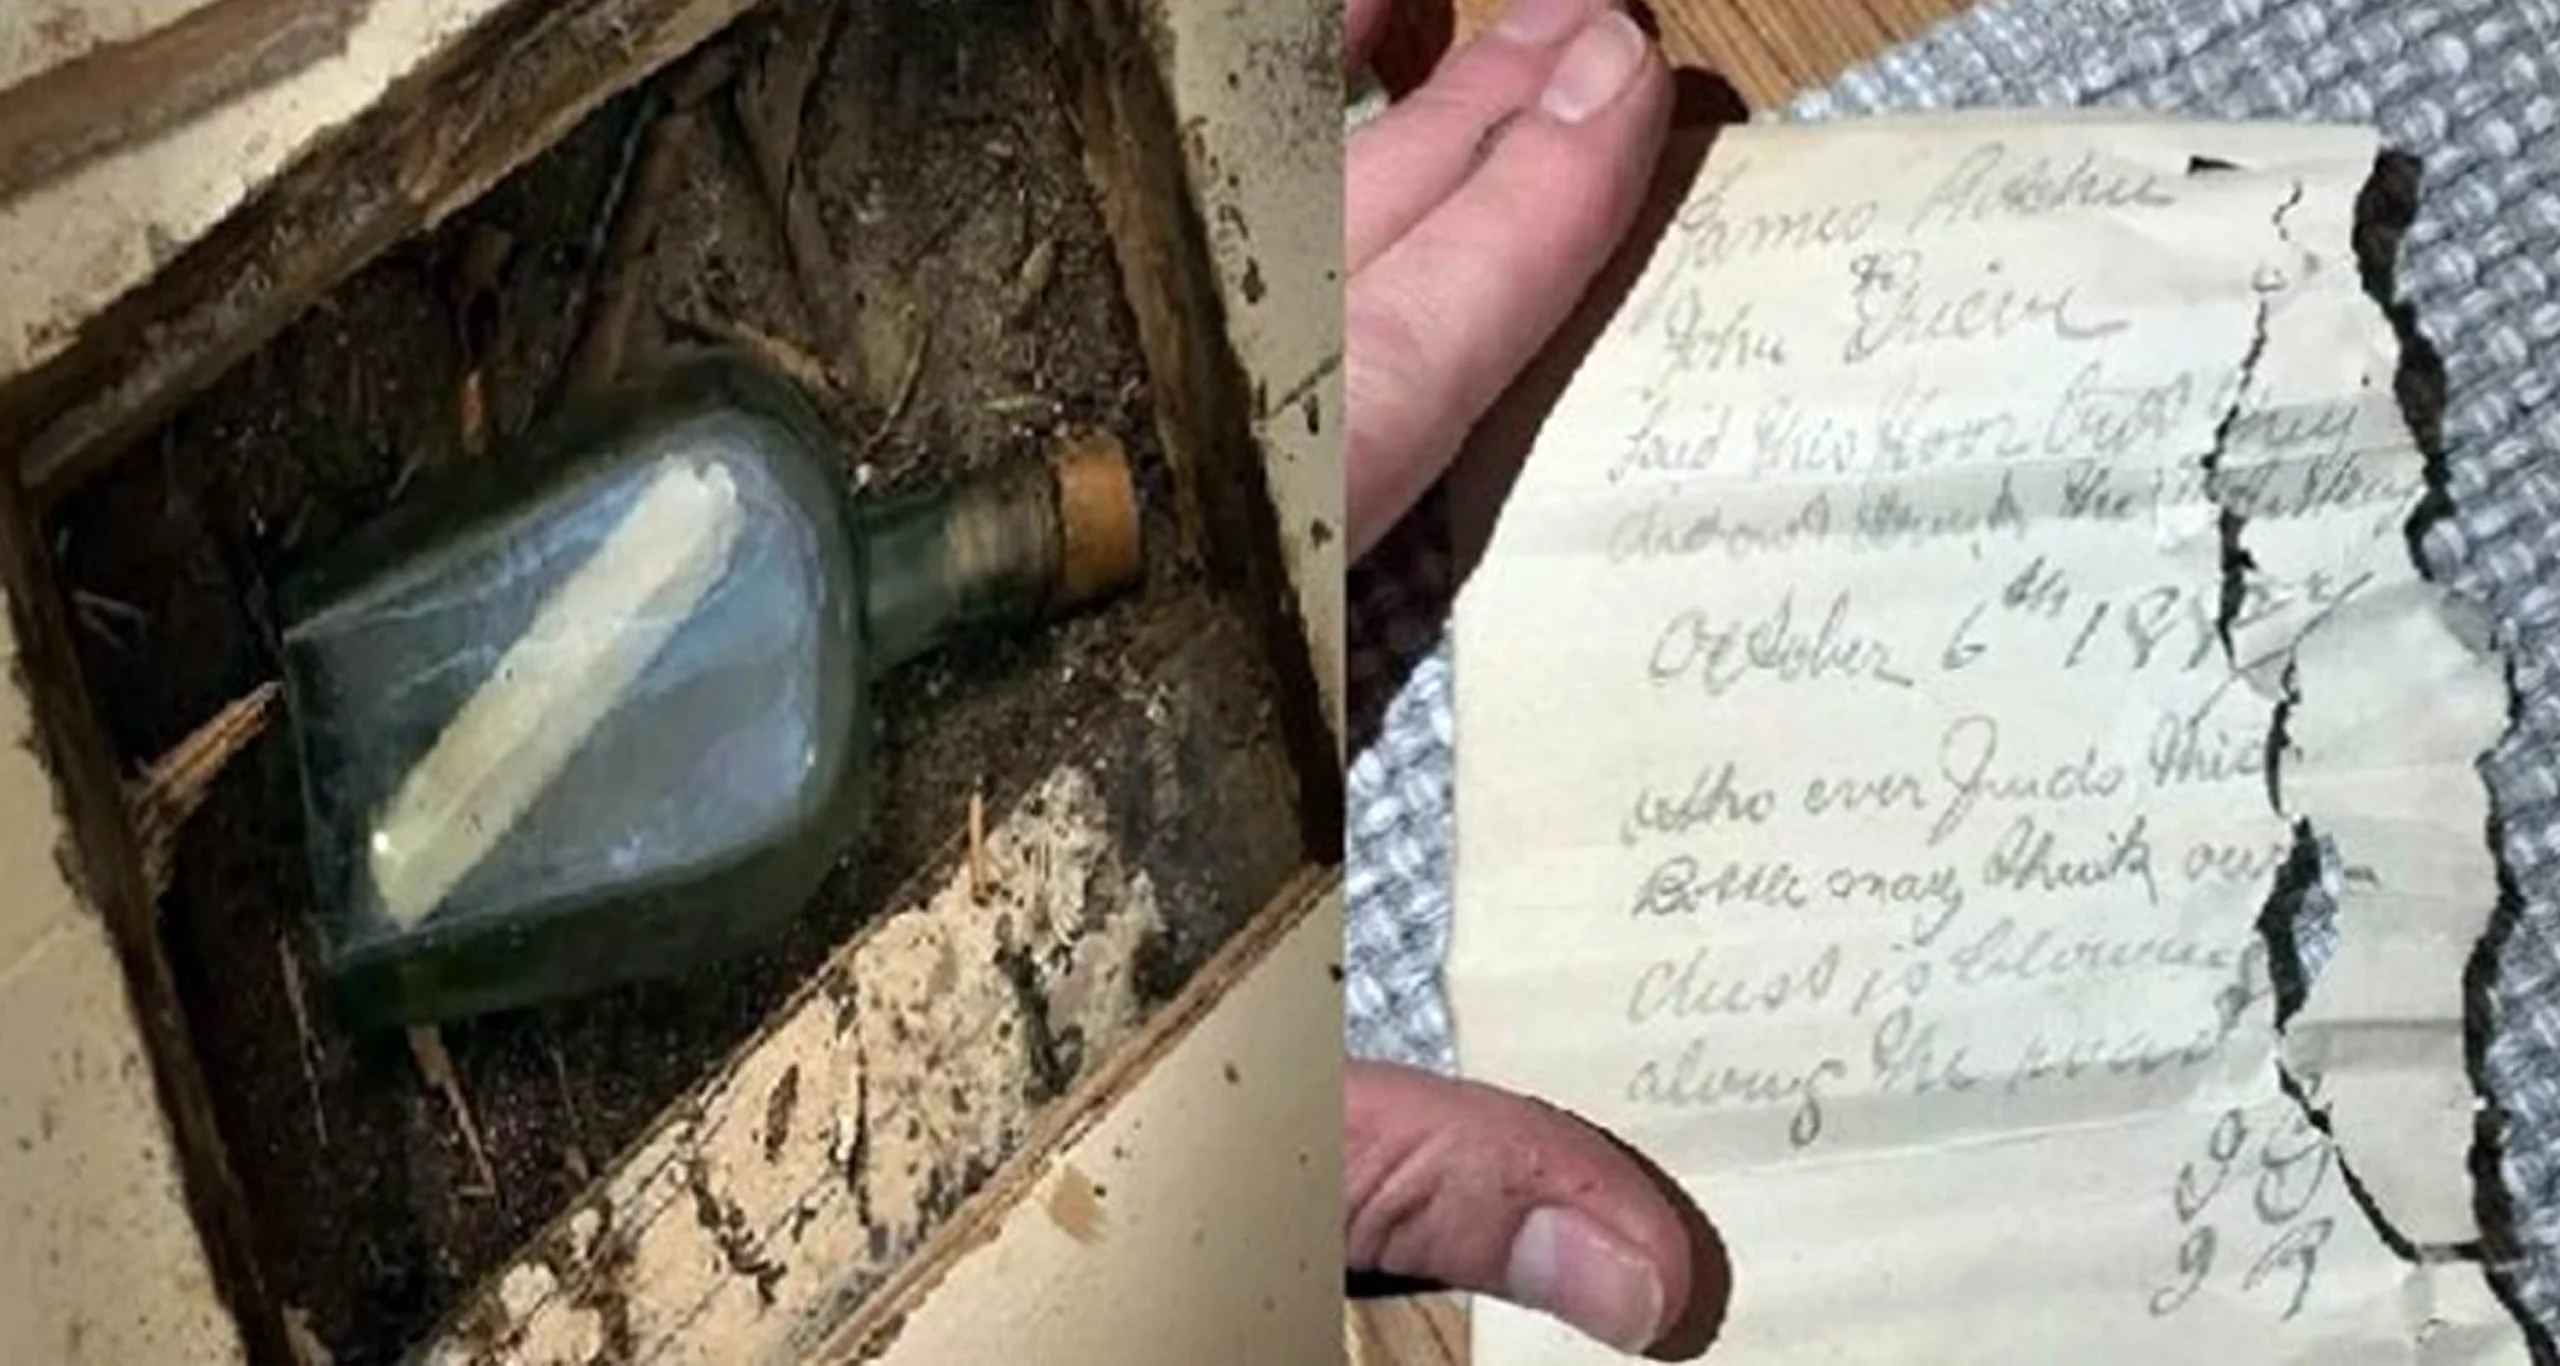 James Ritchie
&
John Grieve
laid this floor but they
did not drink the whisky
October 6th 1887
Who ever finds this
Bottle may think our
dust is blowing
along the road